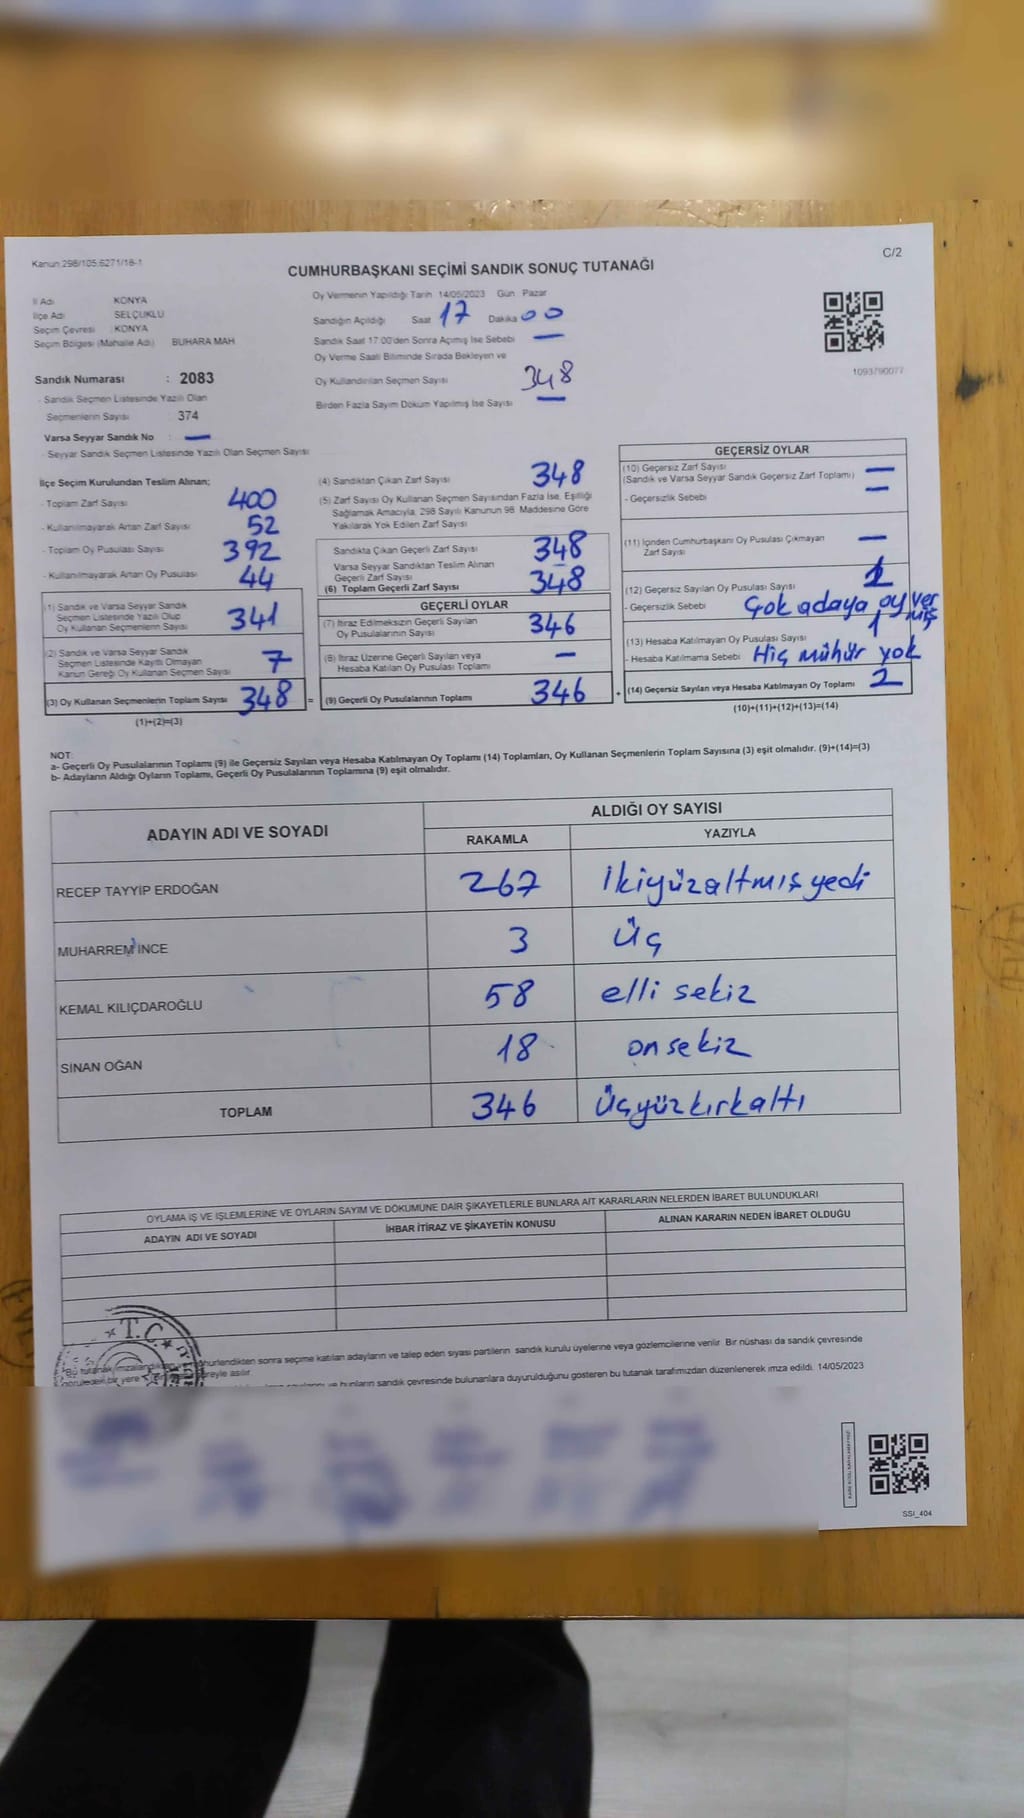 Kanun 298/105;6271/18-1
C/2
CUMHURBAŞKANI SEÇİMİ SANDIK SONUÇ TUTANAĞI
İl Adı KONYA
İlçe Adı SELÇUKLU
Seçim Çevresi KONYA
Seçim Bölgesi (Mahalle Adı) BUHARA MAH
Sandık Numarası : 2083
- Sandık Seçmen Listesinde Yazılı Olan
Seçmenlerin Sayısı : 374
Varsa Seyyar Sandık No : —
- Seyyar Sandık Seçmen Listesinde Yazılı Olan Seçmen Sayısı
Oy Vermenin Yapıldığı Tarih 14/05/2023 Gün Pazar
Sandığın Açıldığı Saat 17 Dakika 00
Sandık Saat 17:00'den Sonra Açımış İse Sebebi —
Oy Verme Saati Bitiminde Sırada Bekleyen ve
Oy Kullandırılan Seçmen Sayısı 348
Birden Fazla Sayım Döküm Yapılmış İse Sayısı —
1093790077
İlçe Seçim Kurulundan Teslim Alınan;
- Toplam Zarf Sayısı 400
- Kullanılmayarak Artan Zarf Sayısı 52
- Toplam Oy Pusulası Sayısı 392
- Kullanılmayarak Artan Oy Pusulası 44
(1) Sandık ve Varsa Seyyar Sandık
Seçmen Listesinde Yazılı Olup
Oy Kullanan Seçmenlerin Sayısı 341
(2) Sandık ve Varsa Seyyar Sandık
Seçmen Listesinde Kayıtlı Olmayan
Kanun Gereği Oy Kullanan Seçmen Sayısı 7
(3) Oy Kullanan Seçmenlerin Toplam Sayısı 348 =
(1)+(2)=(3)
(4) Sandıktan Çıkan Zarf Sayısı 348
(5) Zarf Sayısı Oy Kullanan Seçmen Sayısından Fazla İse, Eşitliği
Sağlamak Amacıyla, 298 Sayılı Kanunun 98. Maddesine Göre
Yakılarak Yok Edilen Zarf Sayısı
Sandıkta Çıkan Geçerli Zarf Sayısı 348
Varsa Seyyar Sandıktan Teslim Alınan
Geçerli Zarf Sayısı
(6) Toplam Geçerli Zarf Sayısı 348
GEÇERLİ OYLAR
(7) İtiraz Edilmeksizin Geçerli Sayılan
Oy Pusulalarının Sayısı 346
(8) İtiraz Üzerine Geçerli Sayılan veya
Hesaba Katılan Oy Pusulası Toplamı —
(9) Geçerli Oy Pusulalarının Toplamı 346 +
GEÇERSİZ OYLAR
(10) Geçersiz Zarf Sayısı —
(Sandık ve Varsa Seyyar Sandık Geçersiz Zarf Toplamı)
- Geçersizlik Sebebi —
(11) İçinden Cumhurbaşkanı Oy Pusulası Çıkmayan
Zarf Sayısı —
(12) Geçersiz Sayılan Oy Pusulası Sayısı 1
- Geçersizlik Sebebi Çok adaya oy vermiş
(13) Hesaba Katılmayan Oy Pusulası Sayısı 1
- Hesaba Katılmama Sebebi Hiç mühür yok
(14) Geçersiz Sayılan veya Hesaba Katılmayan Oy Toplamı 2
(10)+(11)+(12)+(13)=(14)
NOT:
a- Geçerli Oy Pusulalarının Toplamı (9) ile Geçersiz Sayılan veya Hesaba Katılmayan Oy Toplamı (14) Toplamları, Oy Kullanan Seçmenlerin Toplam Sayısına (3) eşit olmalıdır. (9)+(14)=(3)
b- Adayların Aldığı Oyların Toplamı, Geçerli Oy Pusulalarının Toplamına (9) eşit olmalıdır.
ADAYIN ADI VE SOYADI ALDIĞI OY SAYISI
RAKAMLA YAZIYLA
RECEP TAYYİP ERDOĞAN 267 ikiyüzaltmış yedi
MUHARREM İNCE 3 üç
KEMAL KILIÇDAROĞLU 58 elli sekiz
SİNAN OĞAN 18 on sekiz
TOPLAM 346 üçyüzkırkaltı
OYLAMA İŞ VE İŞLEMLERİNE VE OYLARIN SAYIM VE DÖKÜMÜNE DAİR ŞİKAYETLERLE BUNLARA AİT KARARLARIN NELERDEN İBARET BULUNDUKLARI
ADAYIN ADI VE SOYADI İHBAR İTİRAZ VE ŞİKAYETİN KONUSU ALINAN KARARIN NEDEN İBARET OLDUĞU
T.C.
Bu tutanak imzalandıktan sonra seçime katılan adayların ve talep eden siyasi partilerin sandık kurulu üyelerine veya gözlemcilerine verilir. Bir nüshası da sandık çevresinde
görülebilen bir yere asılır.
bunların sandık çevresinde bulunanlara duyurulduğunu gösteren bu tutanak tarafımızdan düzenlenerek imza edildi. 14/05/2023
SSI_404